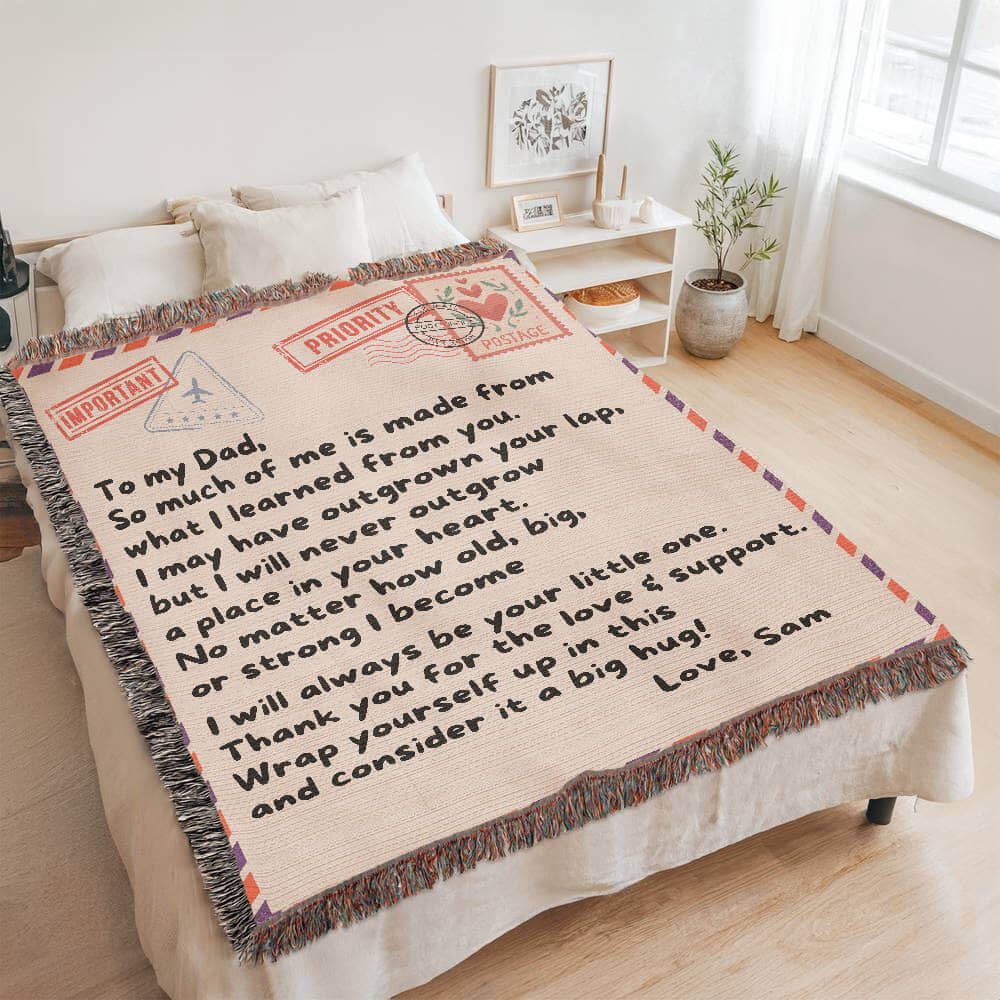 PRIORITY
POSTAGE
IMPORTANT
To my Dad,
So much of me is made from
what I learned from you.
I may have outgrown your lap,
but I will never outgrow
a place in your heart.
No matter how old, big,
or strong I become
I will always be your little one.
Thank you for the love & support.
Wrap yourself up in this
and consider it a big hug!
Love, Sam